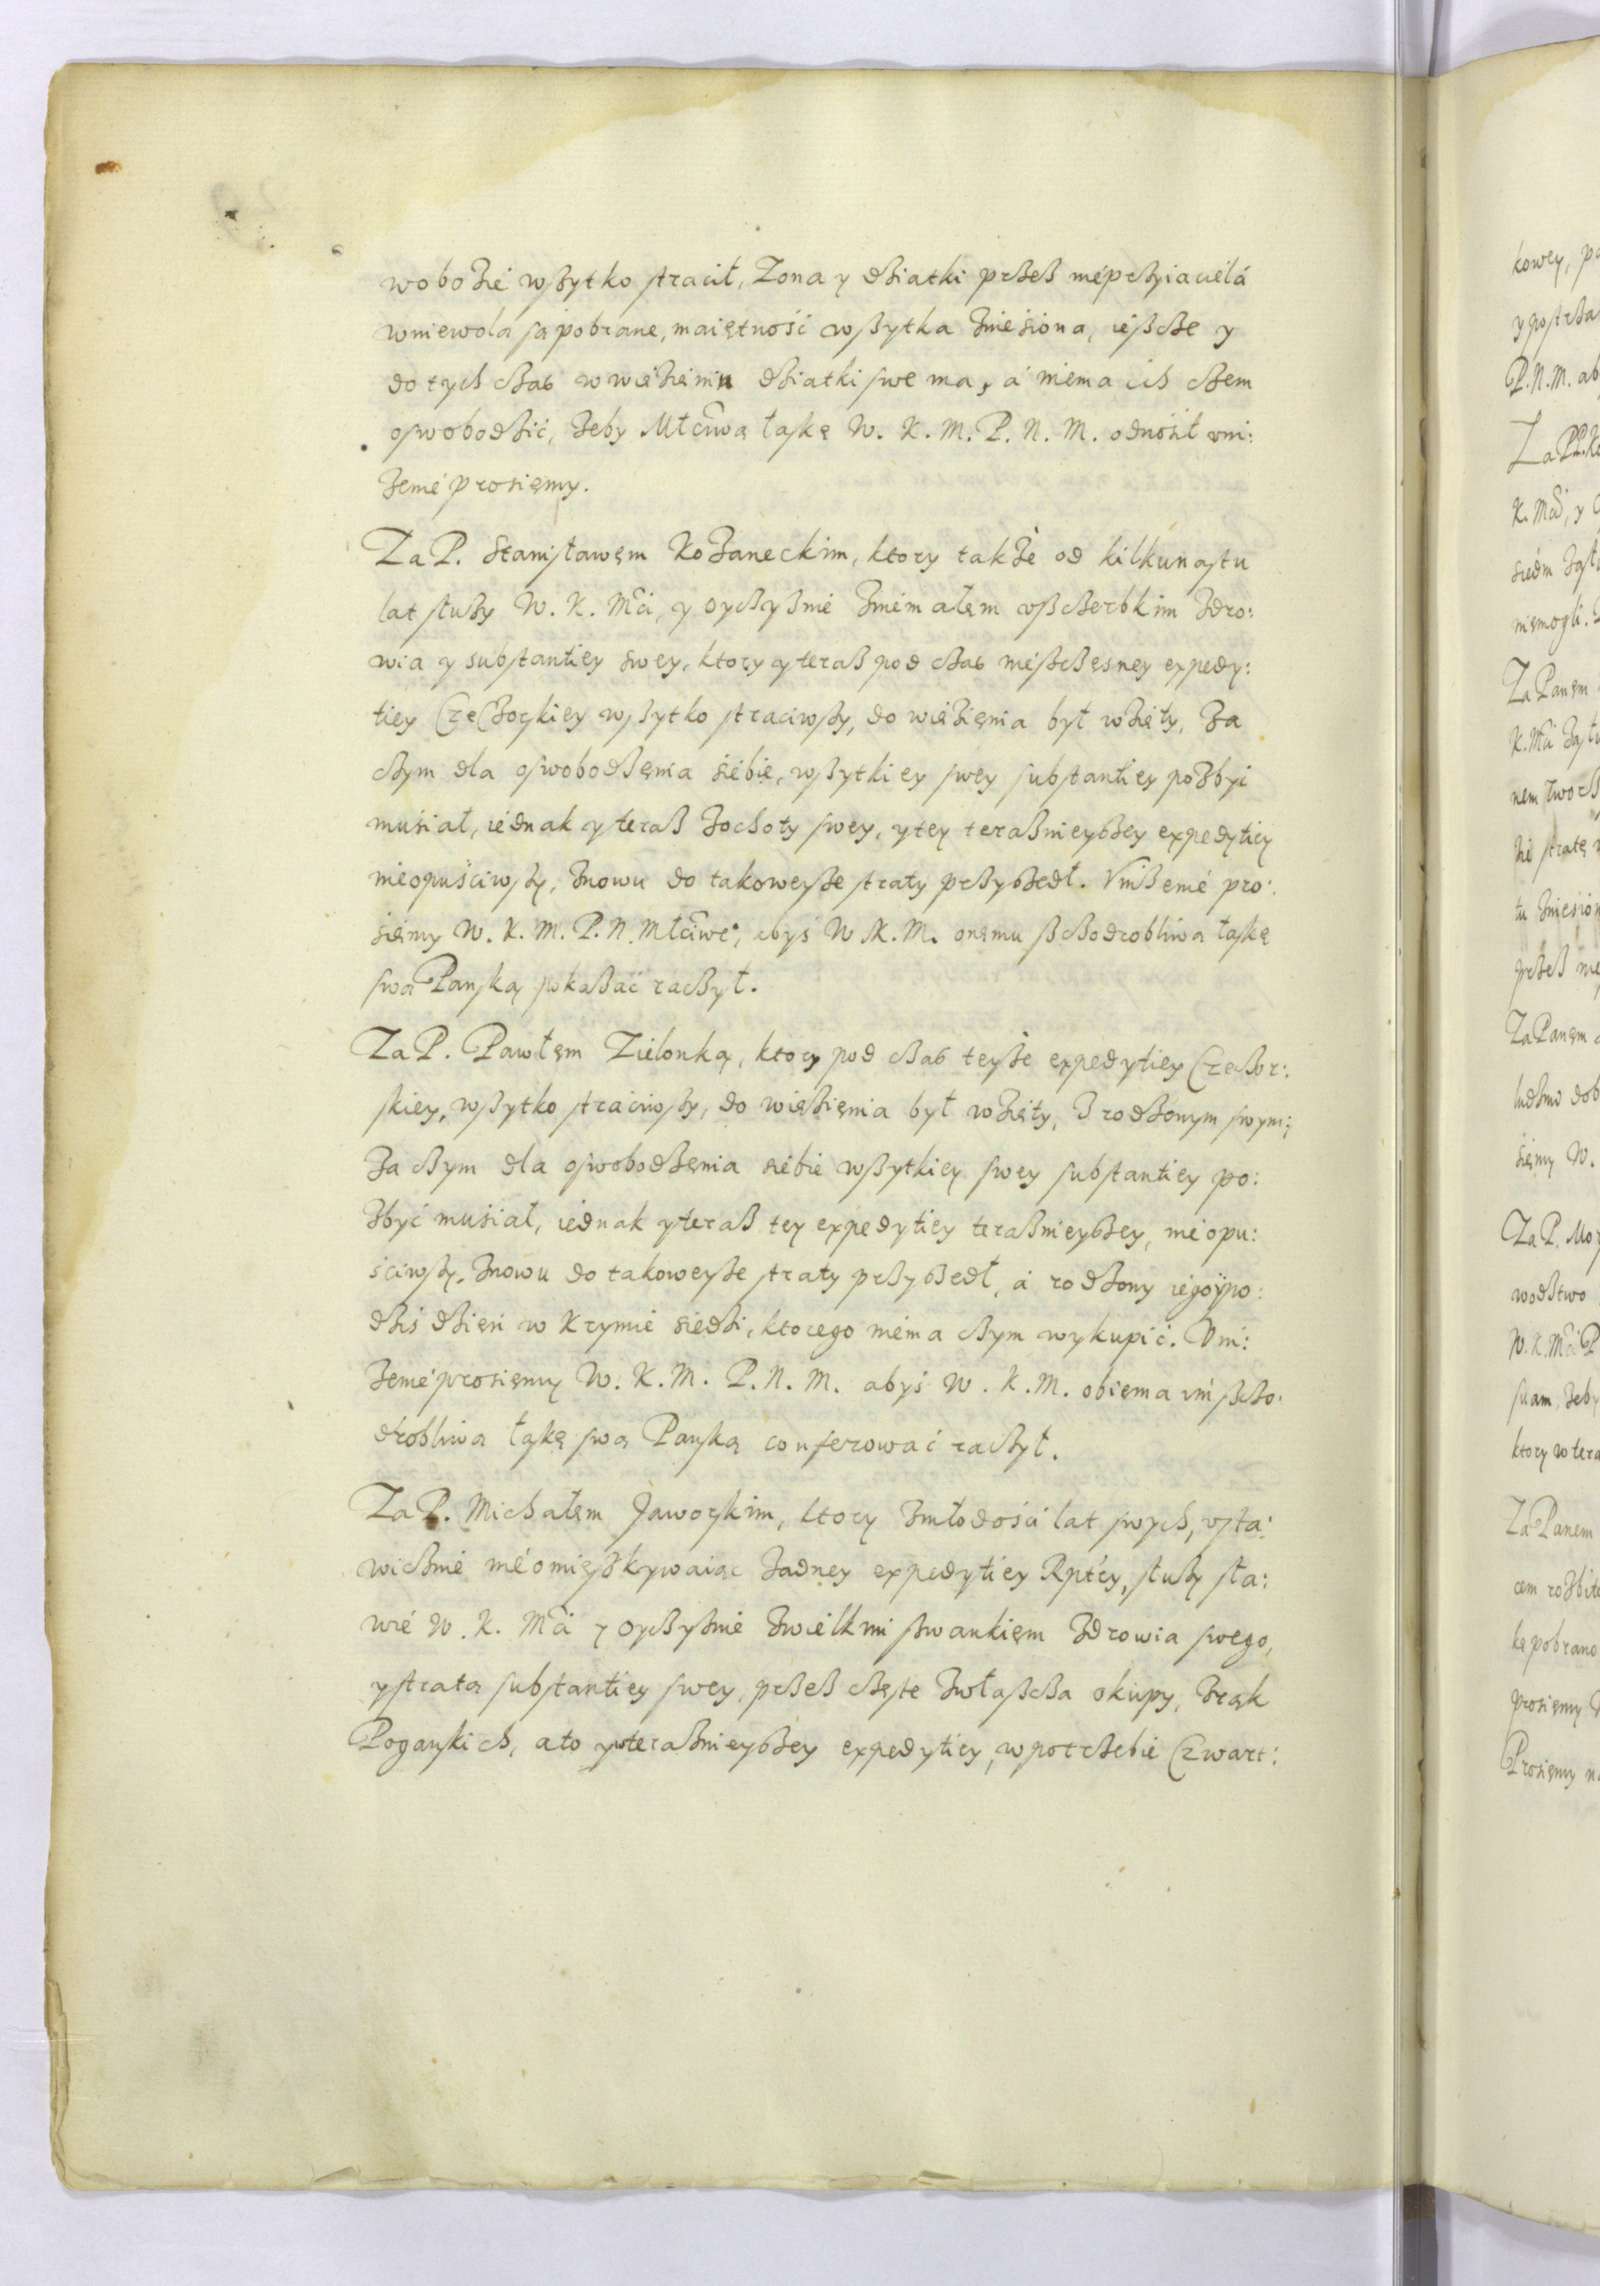 wobozie wszytko stracił, Zona y dziatki przez nieprzyiaciela
wniewolą są pobrane, maiętność wszytka zniesiona, ieszcze y
do tych czas wwięzieniu dziatki swe ma, á niema ich czem
oswobodzić, żeby Młćiwą łaskę W. K. M. P. N. M. odnosił vni:
żenie prosięmy.
Za P. Stanisławęm Kożaneckim, ktory także od kilkunastu
lat służy W. K. Mći, y oyczyznie zniemałęm vszczerbkim zdro:
wia y substantiey swey, ktory y teraz pod czas nieszczęsney expedy:
tiey Cecorskiey wszytko straciwszy, do więzięnia był wzięty, Za
czym dla oswobodzęnia siebie, wszytkiey swey substantiey pozbyć
musiał, iednak y teraz zochoty swey, y tey teraznieyszey expedytiey
nieopuściwszy, znowu do takoweyże straty przyszedł. Vniżenie pro:
sięmy W. K. M. P. N. Młćiwe°, abyś W K. M. onęmu szczodrobliwą łaskę
swą Panską pokazać raczył.
Za P. Pawłęm Zielonką, ktory pod czas teyże expedytiey Cecor:
skiey, wszytko straciwszy, do więzięnia był wzięty, z rodzonym swym;
Za czym dla oswobodzęnia siebie wszytkiey swey substantiey po:
zbyć musiał, iednak y teraz tey expedytiey teraznieyszey, nieopu:
ściwszy, znowu do takoweyże straty przyszedł, á rodzony iego ypo:
dziś dzień w Krymie siedzi, ktorego niema czym wykupić. Vni:
żenie prosięmy W. K. M. P. N. M. abyś W. K. M. obięma im szczo:
drobliwą łaskę swą Panską conferować raczył.
Za P. Michałęm Jaworskim, ktory zmłodości lat swych, vsta:
wicznie nieomięszkywaiąc żadney expedytiey Rptéy, służy sta:
wie W. K. Mći y oyczyznie zwielkmi szwankięm zdrowia swego,
ystratą substantiey swey, przez częste zwłaszcza okupy, zrąk
Poganskich, ato ywteraznieyszey expedytiey, wpotrzebie Czwart: